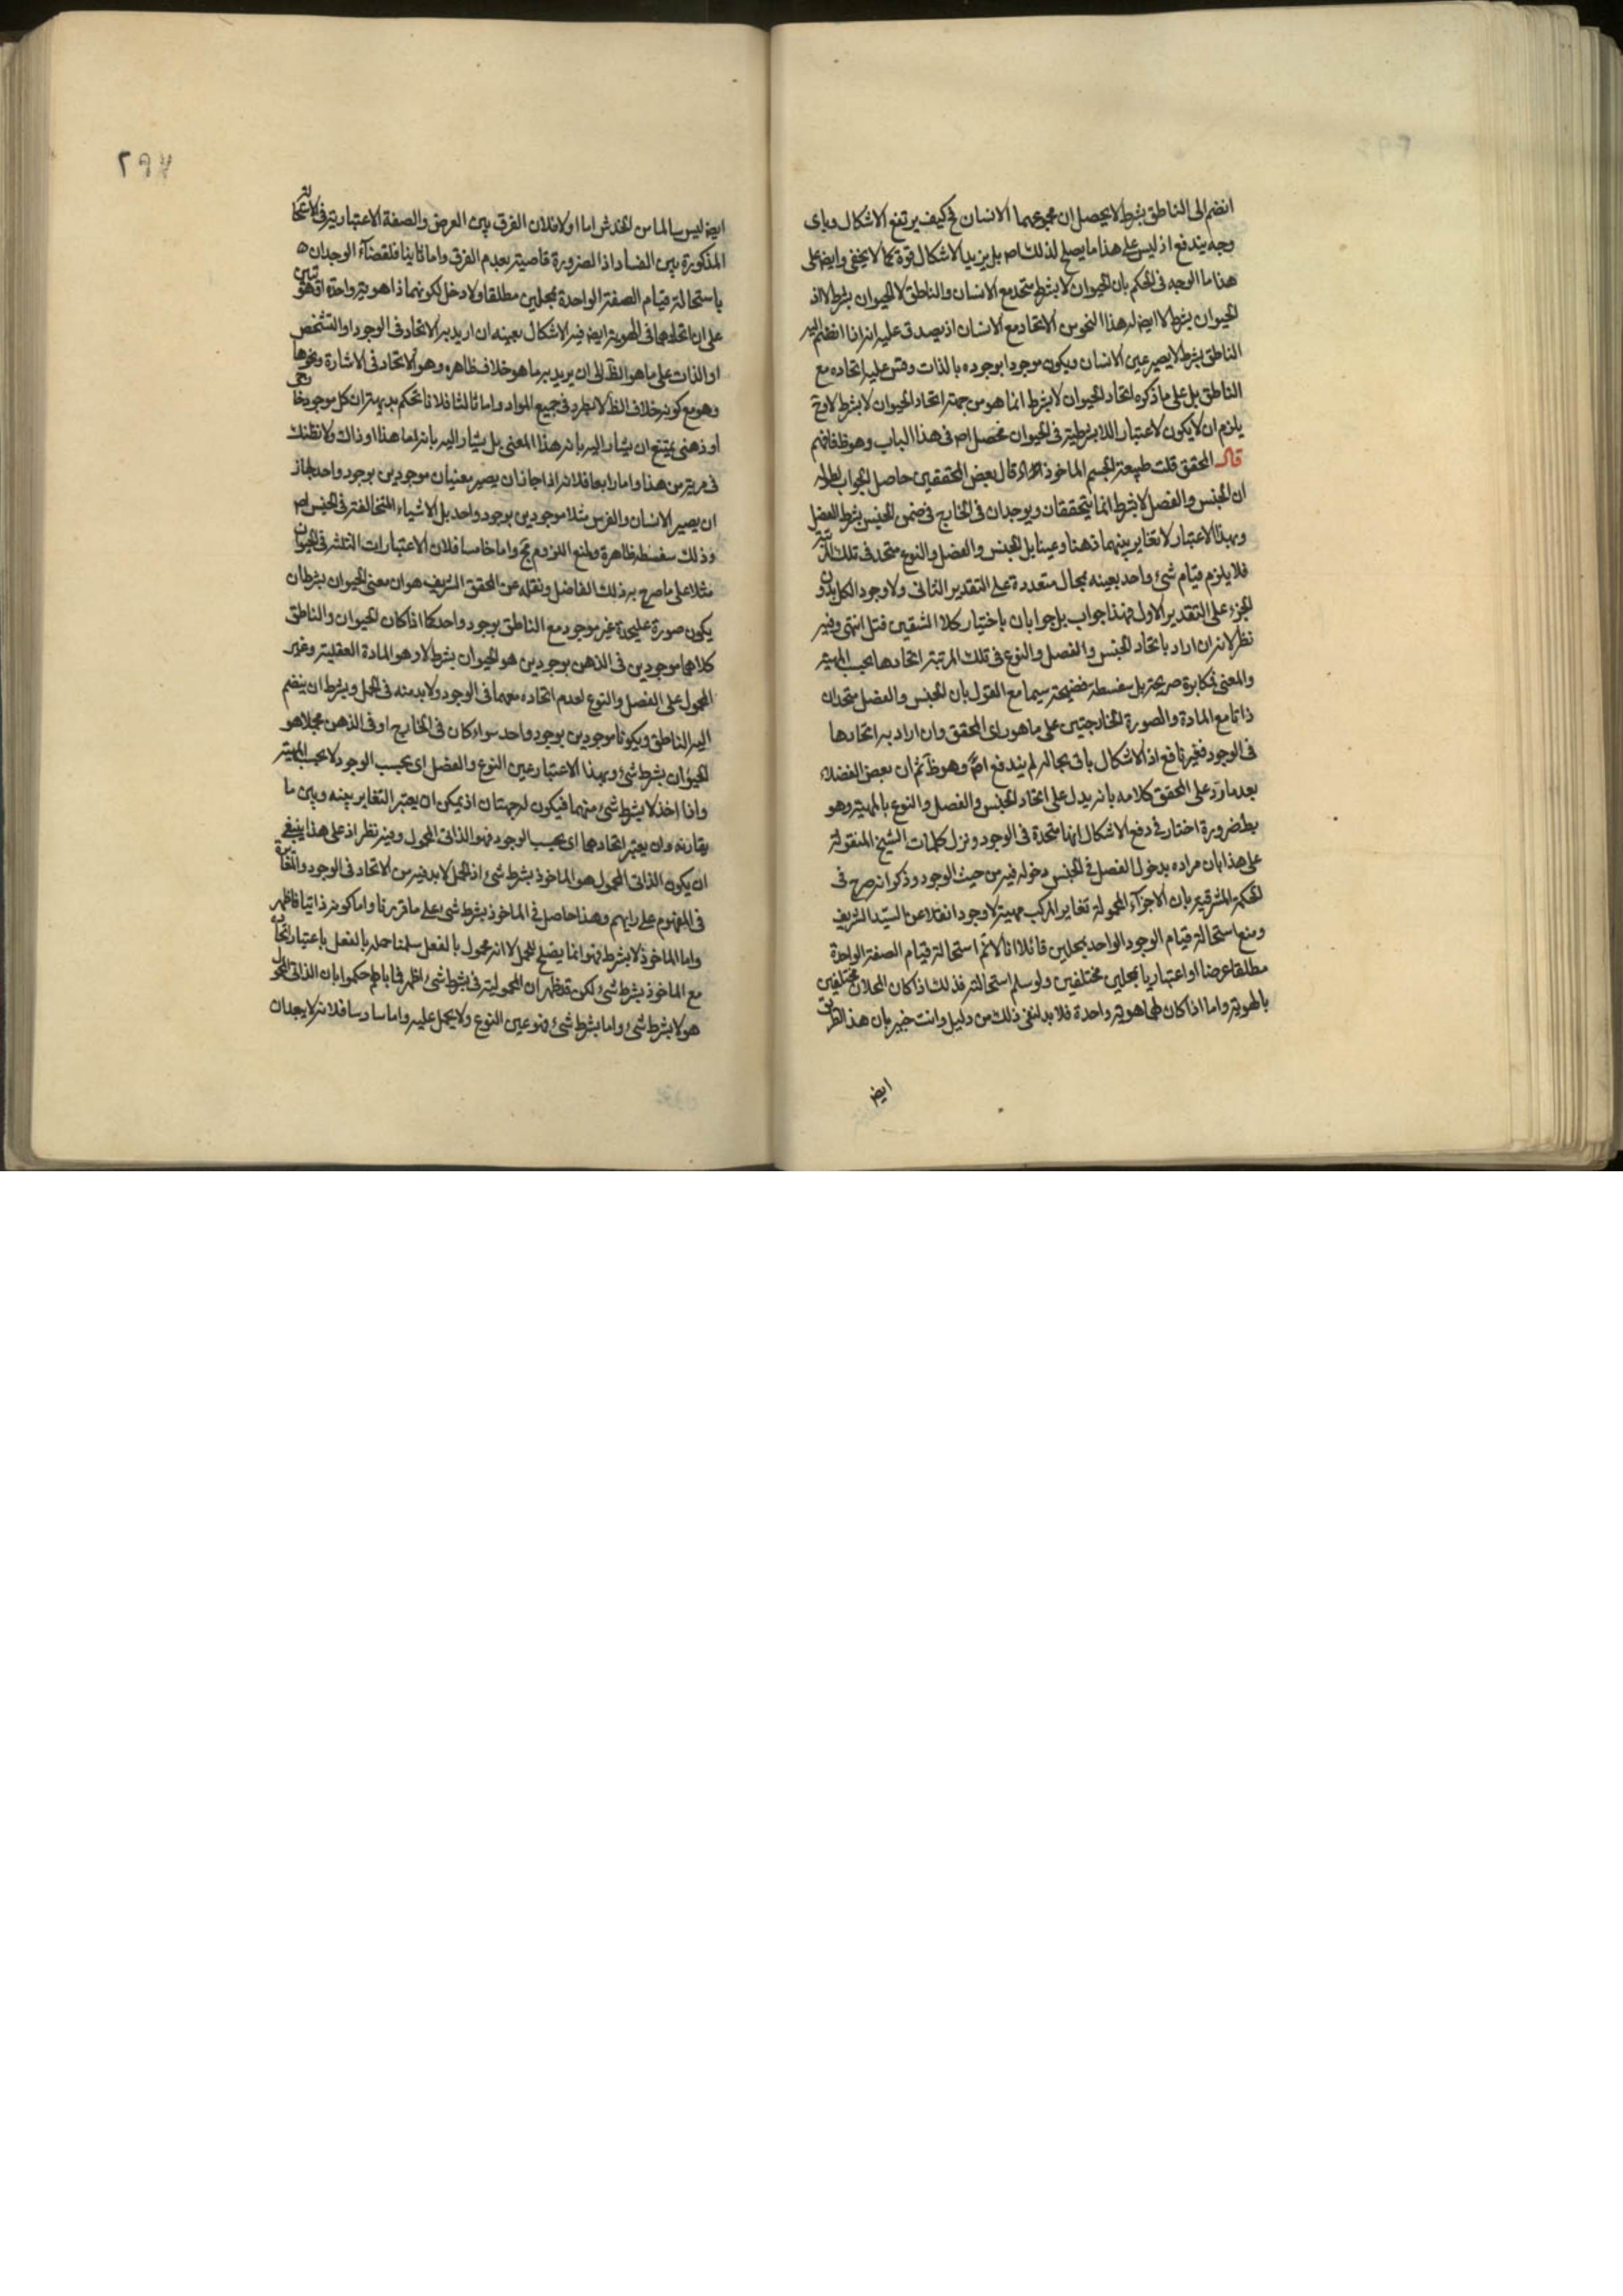 انضم الى الناطق بشرط لا يحصل ان مجموعهما الانسان فح كيف يرتفع الاشكال وباى
وجه يندفع اذ ليس على هذا ما يصلح لذلك اصلا بل يزيد الاشكال قوة كما لا يخفى وايضا على
هذا ما الوجه فى الحكم بان الحيوان لا بشرط متحد مع الانسان والناطق لا الحيوان بشرط لا اذ
الحيوان بشرط لا ايضا له هذا النحو من الاتحاد مع الانسان اذ يصدق عليه انه اذا انضم اليه
الناطق بشرط لا يصير عين الانسان ويكون موجودا بوجوده بالذات وقس عليه اتحاده مع
الناطق بل على ما ذكره اتحاد الحيوان لا بشرط انما هو من جهة اتحاد الحيوان لا بشرط لا وح
يلزم ان لا يكون لاعتبار اللابشرطية فى الحيوان محصل اصلا فى هذا الباب وهو ظ فافهم
قال المحقق قلت طبيعة الجسم الماخوذ قال بعض المحققين حاصل الجواب
ان الجنس والفصل لا بشرط انما يتحققان ويوجدان فى الخارج فى ضمن الجنس بشرط الفصل
وبهذا الاعتبار لا تغاير بينهما ذهنا وعينا بل الجنس والفصل والنوع متحد فى تلك المرتبة
فلا يلزم قيام شئ واحد بعينه بمحال متعددة على التقدير الثانى ولا وجود الكل بدون
الجزء على التقدير الاول فهذا جواب بل جوابان باختيار كلا الشقين انتهى وفيه
نظر لانه ان اراد باتحاد الجنس والفصل والنوع فى تلك المرتبة اتحادها بحسب المهية
والمعنى فمكابرة صريحة بل سفسطة فضيحة سيما مع القول بان الجنس والفصل متحدان
ذاتا مع المادة والصورة الخارجيتين على ما هو راى المحقق وان اراد به اتحادها
فى الوجود فغير نافع اذ الاشكال باق بحاله لم يندفع اصلا وهو ظ ثم ان بعض الفضلاء
بعد ما رد على المحقق كلامه بانه يدل على اتحاد الجنس والفصل والنوع بالمهية وهو
بط ضرورة اختار فى دفع الاشكال انها متحدة فى الوجود ونزل كلمات الشيخ المنقولة
على هذا بان مراده بدخول الفصل فى الجنس دخوله فيه من حيث الوجود وذكر انه صرح فى
الحكمة المشرقية بان الاجزاء المحمولة تغاير المركب مهية لا وجودا نقلا عن السيد الشريف
ومنع استحالة قيام الوجود الواحد بمحلين قائلا انا لا نم استحالة قيام الصفة الواحدة
مطلقا عرضا او اعتباريا بمحلين مختلفين ولو سلم استحالته فذلك اذا كان المحلان مختلفين
بالهوية واما اذا كان لهما هوية واحدة فلا بد لنفى ذلك من دليل وانت خبير بان هذا الطريق
ايضا
٢٩٧
ايضا ليس سالما من الخدش اما اولا فلان الفرق بين العرض والصفة الاعتبارية فى الاستحالة
المذكورة بين الفساد اذ الضرورة قاضية بعدم الفرق واما ثانيا فلقضاء الوجدان
باستحالة قيام الصفة الواحدة بمحلين مطلقا ولا دخل لكونهما ذا هوية واحدة او هويتين
على ان اتحادهما فى الهوية ايضا فيه الاشكال بعينه ان اريد به الاتحاد فى الوجود او التشخص
او الذات على ما هو الظ الى ان يريد به ما هو خلاف ظاهره وهو الاتحاد فى الاشارة ونحوها
وهو مع كونه خلاف الظ لا يطرد فى جميع المواد واما ثالثا فلانا نحكم بديهة ان كل موجود خارجى
او ذهنى يمتنع ان يشار اليه بانه هذا المعنى بل يشار اليه بانه اما هذا او ذاك ولا نظنك
فى مرية من هذا واما رابعا فلانه اذا جاز ان يصير معنيان موجودين بوجود واحد لجاز
ان يصير الانسان والفرس مثلا موجودين بوجود واحد بل الاشياء المتخالفة فى الجنس اصلا
وذلك سفسطة ظاهرة ومنع اللزوم تحكم واما خامسا فلان الاعتبارات الثلثة فى الحيوان
مثلا على ما صرح به ذلك الفاضل ونقله عن المحقق الشريف هو ان معنى الحيوان بشرط ان
يكون صورة عليحدة غير موجود مع الناطق بوجود واحد كما اذا كان الحيوان والناطق
كلاهما موجودين فى الذهن بوجودين هو الحيوان بشرط لا وهو المادة العقلية وغير
المحمول على الفصل والنوع لعدم اتحاده معهما فى الوجود ولا بد منه فى الحمل وبشرط ان ينضم
اليه الناطق ويكونا موجودين بوجود واحد سواء كان فى الخارج او فى الذهن مجملا هو
الحيوان بشرط شئ وبهذا الاعتبار عين النوع والفصل اى بحسب الوجود لا بحسب المهية
واذا اخذ لا بشرط شئ منهما فيكون له جهتان اذ يمكن ان يعتبر التغاير بينه وبين ما
يقارنه وان يعتبر اتحادهما اى بحسب الوجود فهو الذاتى المحمول وفيه نظر اذ على هذا ينبغى
ان يكون الذاتى المحمول هو الماخوذ بشرط شئ اذ الحمل لا بد فيه من الاتحاد فى الوجود والتغاير
فى المفهوم على رايهم وهذا حاصل فى الماخوذ بشرط شئ على ما قررنا واما كونه ذاتيا فاظهر
واما الماخوذ لا بشرط فهو انما يصلح للحمل لا انه محمول بالفعل سلمنا حمله بالفعل باعتبار اتحاده
مع الماخوذ بشرط شئ لكن قد ظهر ان المحمولية فى بشرط شئ اظهر فما بالهم حكموا بان الذاتى المحمول
هو لا بشرط شئ واما بشرط شئ فنوعين النوع ولا يحمل عليه واما سادسا فلانه لا يجدان